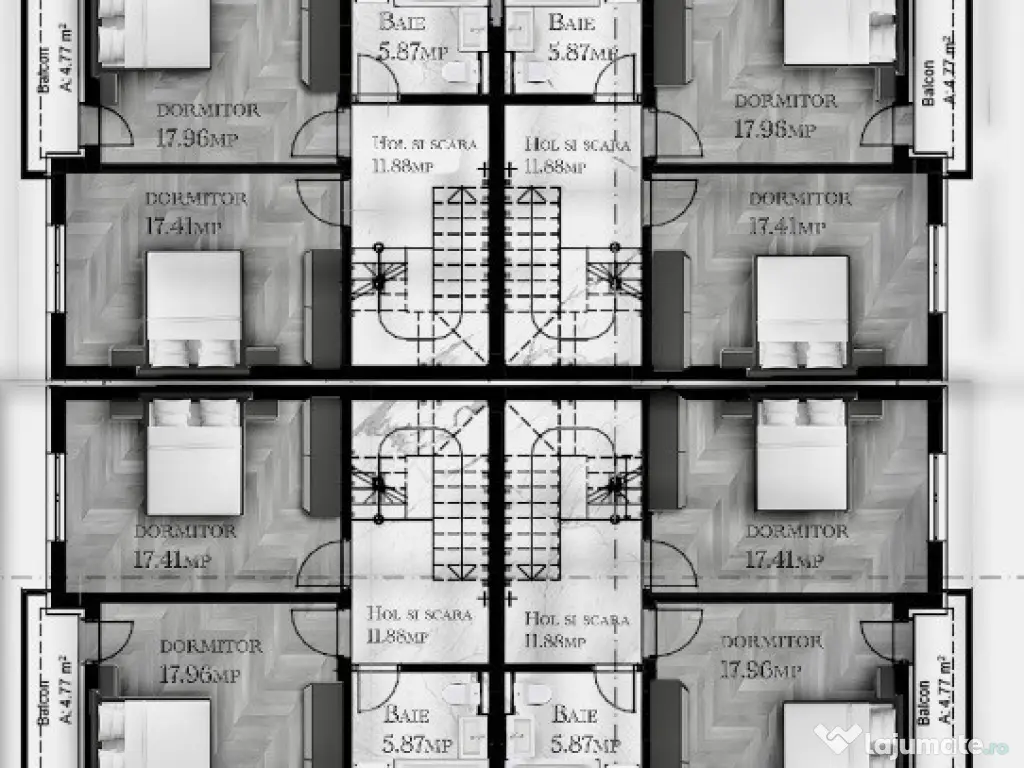 BAIE
5.87MP
BAIE
5.87MP
Balcon
A: 4.77 m²
Balcon
A: 4.77 m²
DORMITOR
17.96MP
DORMITOR
17.96MP
HOL SI SCARA
11.88MP
HOL SI SCARA
11.88MP
DORMITOR
17.41MP
DORMITOR
17.41MP
DORMITOR
17.41MP
DORMITOR
17.41MP
HOL SI SCARA
11.88MP
HOL SI SCARA
11.88MP
DORMITOR
17.96MP
DORMITOR
17.96MP
Balcon
A: 4.77 m²
Balcon
A: 4.77 m²
BAIE
5.87MP
BAIE
5.87MP
Lajumate.ro